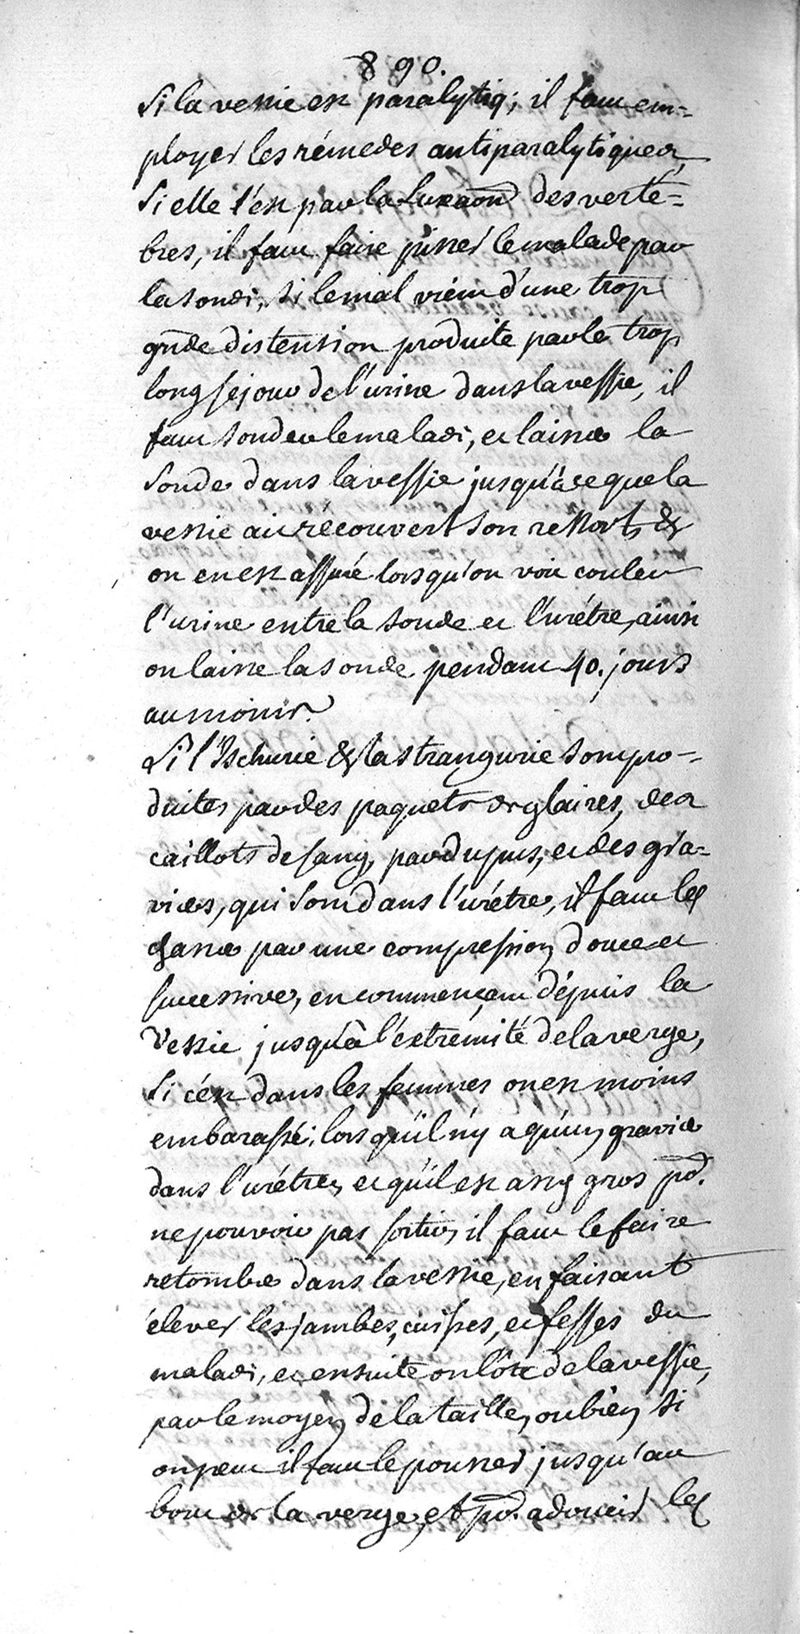 890.
Si la vessie est paralytiq; il faut em=
ployer les rémedes antiparalytiques,
Si elle l'est par la Luxaõn des verte=
bres, il faut faire pisser le malade par
la sonde, si le mal vient d'une trop
gnde distension produite par le trop
long sejour de l'urine dans la vessie, il
faut sonder le malade, et laisser la
sonde dans la vessie jusqu'à ce que la
vessie ait récouvert son ressort, &
on en est assuré lorsqu'on voit couler
l'urine entre la sonde et l'urétre, ainsi
on laisse la sonde pendant 40. jours
au moins.
Si l'Ischurie & la strangurie sont pro-
duites par des paquets de glaires, des
caillots de sang, par du pus, et des gra=
viers, qui sont dans l'urétre, il faut les
chasser par une compression douce et
successive, en commençant dépuis la
Vessie jusqu'à l'extrémité de la verge,
Si c'est dans les femmes on est moins
embarassé; lorsqu'il n'y a qu'un gravier
dans l'urétre, et qu'il est assez gros pr.
ne pouvoir pas sortir, il faut le faire
retomber dans la vessie, en faisant
élever les jambes, cuisses, et fesses du
malade, et ensuite on l'ôte de la vessie,
par le moyen de la taille, ou bien si
on peut il faut le pousser jusqu'au
bout de la verge, et pr. adoucir les